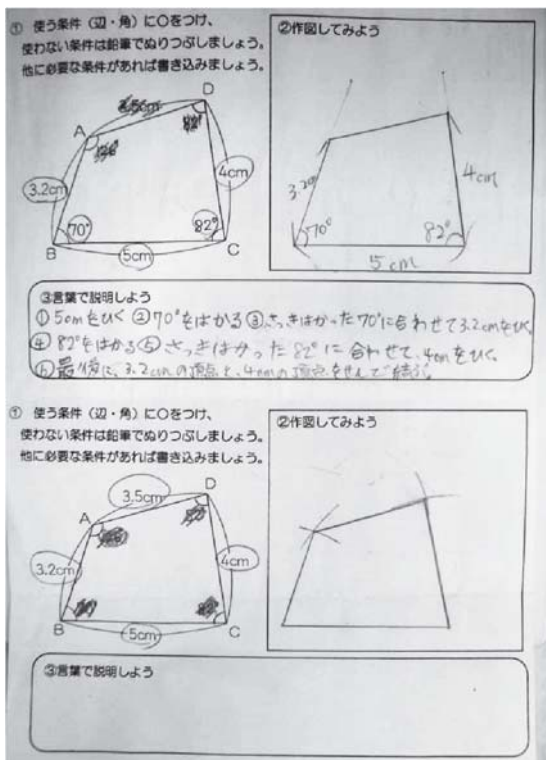 ① 使う条件（辺・角）に〇をつけ、
使わない条件は鉛筆でぬりつぶしましょう。
他に必要な条件があれば書き込みましょう。
D
A
3.2cm
4cm
70°
82°
B
5cm
C
②作図してみよう
3.2cm
4cm
70°
82°
5cm
③言葉で説明しよう
① 5cmをひく ② 70°をはかる ③ さっきはかった70°に合わせて3.2cmをひく
④ 82°をはかる ⑤ さっきはかった82°に合わせて、4cmをひく。
⑥ 最後に、3.2cmの頂点と、4cmの頂点をせんで結ぶ。
① 使う条件（辺・角）に〇をつけ、
使わない条件は鉛筆でぬりつぶしましょう。
他に必要な条件があれば書き込みましょう。
3.5cm
D
A
3.2cm
4cm
B
5cm
C
②作図してみよう
③言葉で説明しよう